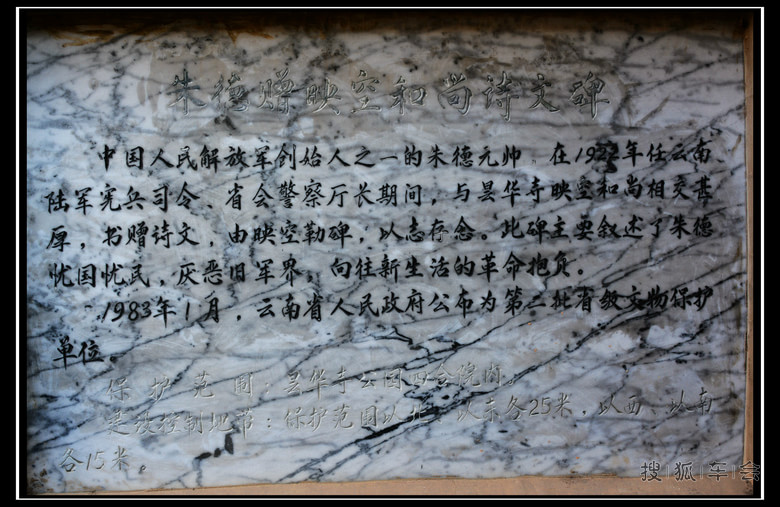 朱德赠映空和尚诗文碑
中国人民解放军创始人之一的朱德元帅,在1922年任云南
陆军宪兵司令、省会警察厅长期间,与昙华寺映空和尚相交甚
厚,书赠诗文,由映空勒碑,以志存念。此碑主要叙述了朱德
忧国忧民,厌恶旧军界,向往新生活的革命抱负。
1983年1月,云南省人民政府公布为第二批省级文物保护
单位。
保护范围:昙华寺公园四合院内。
建设控制地带:保护范围以北、以东各25米,以西、以南
各15米。
搜狐车会